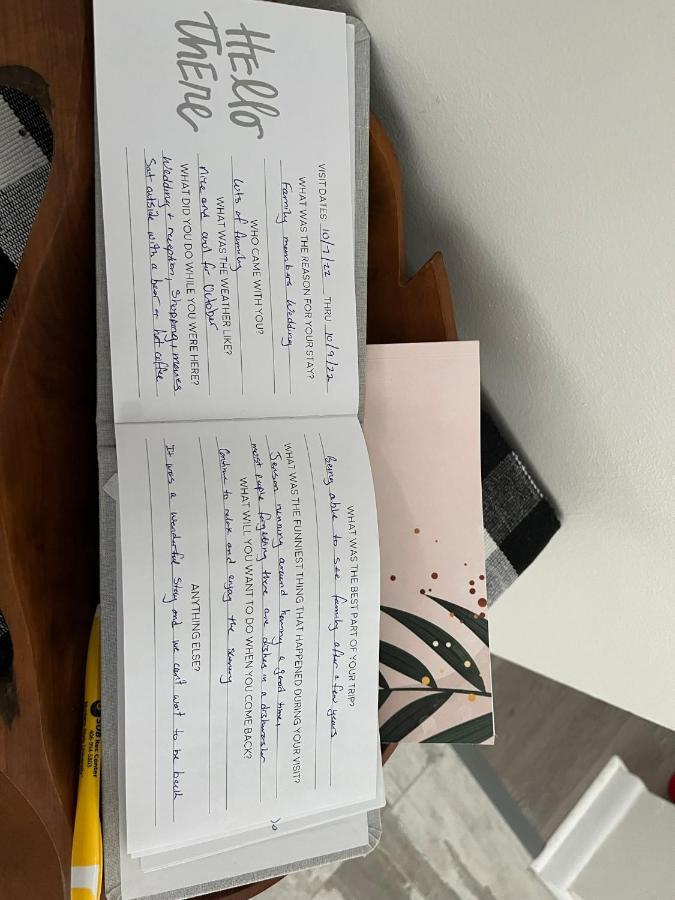 HEllo
THERE
VISIT DATES: 10/7/22 THRU 10/9/22
WHAT WAS THE REASON FOR YOUR STAY?
Family members Wedding
WHO CAME WITH YOU?
Lots of family
WHAT WAS THE WEATHER LIKE?
Nice and cool for October
WHAT DID YOU DO WHILE YOU WERE HERE?
Wedding + reception, Shopping, movies
Sat outside with a bear or hot coffee
WHAT WAS THE BEST PART OF YOUR TRIP?
Being able to see family after a few years
WHAT WAS THE FUNNIEST THING THAT HAPPENED DURING YOUR VISIT?
running around having a good time,
most people forgetting there are dishes in a dishwasher
WHAT WILL YOU WANT TO DO WHEN YOU COME BACK?
Continue to relax and enjoy the scenery
ANYTHING ELSE?
It was a wonderful stay and we can't wait to be back
SUB Rec Center
406-994-5803